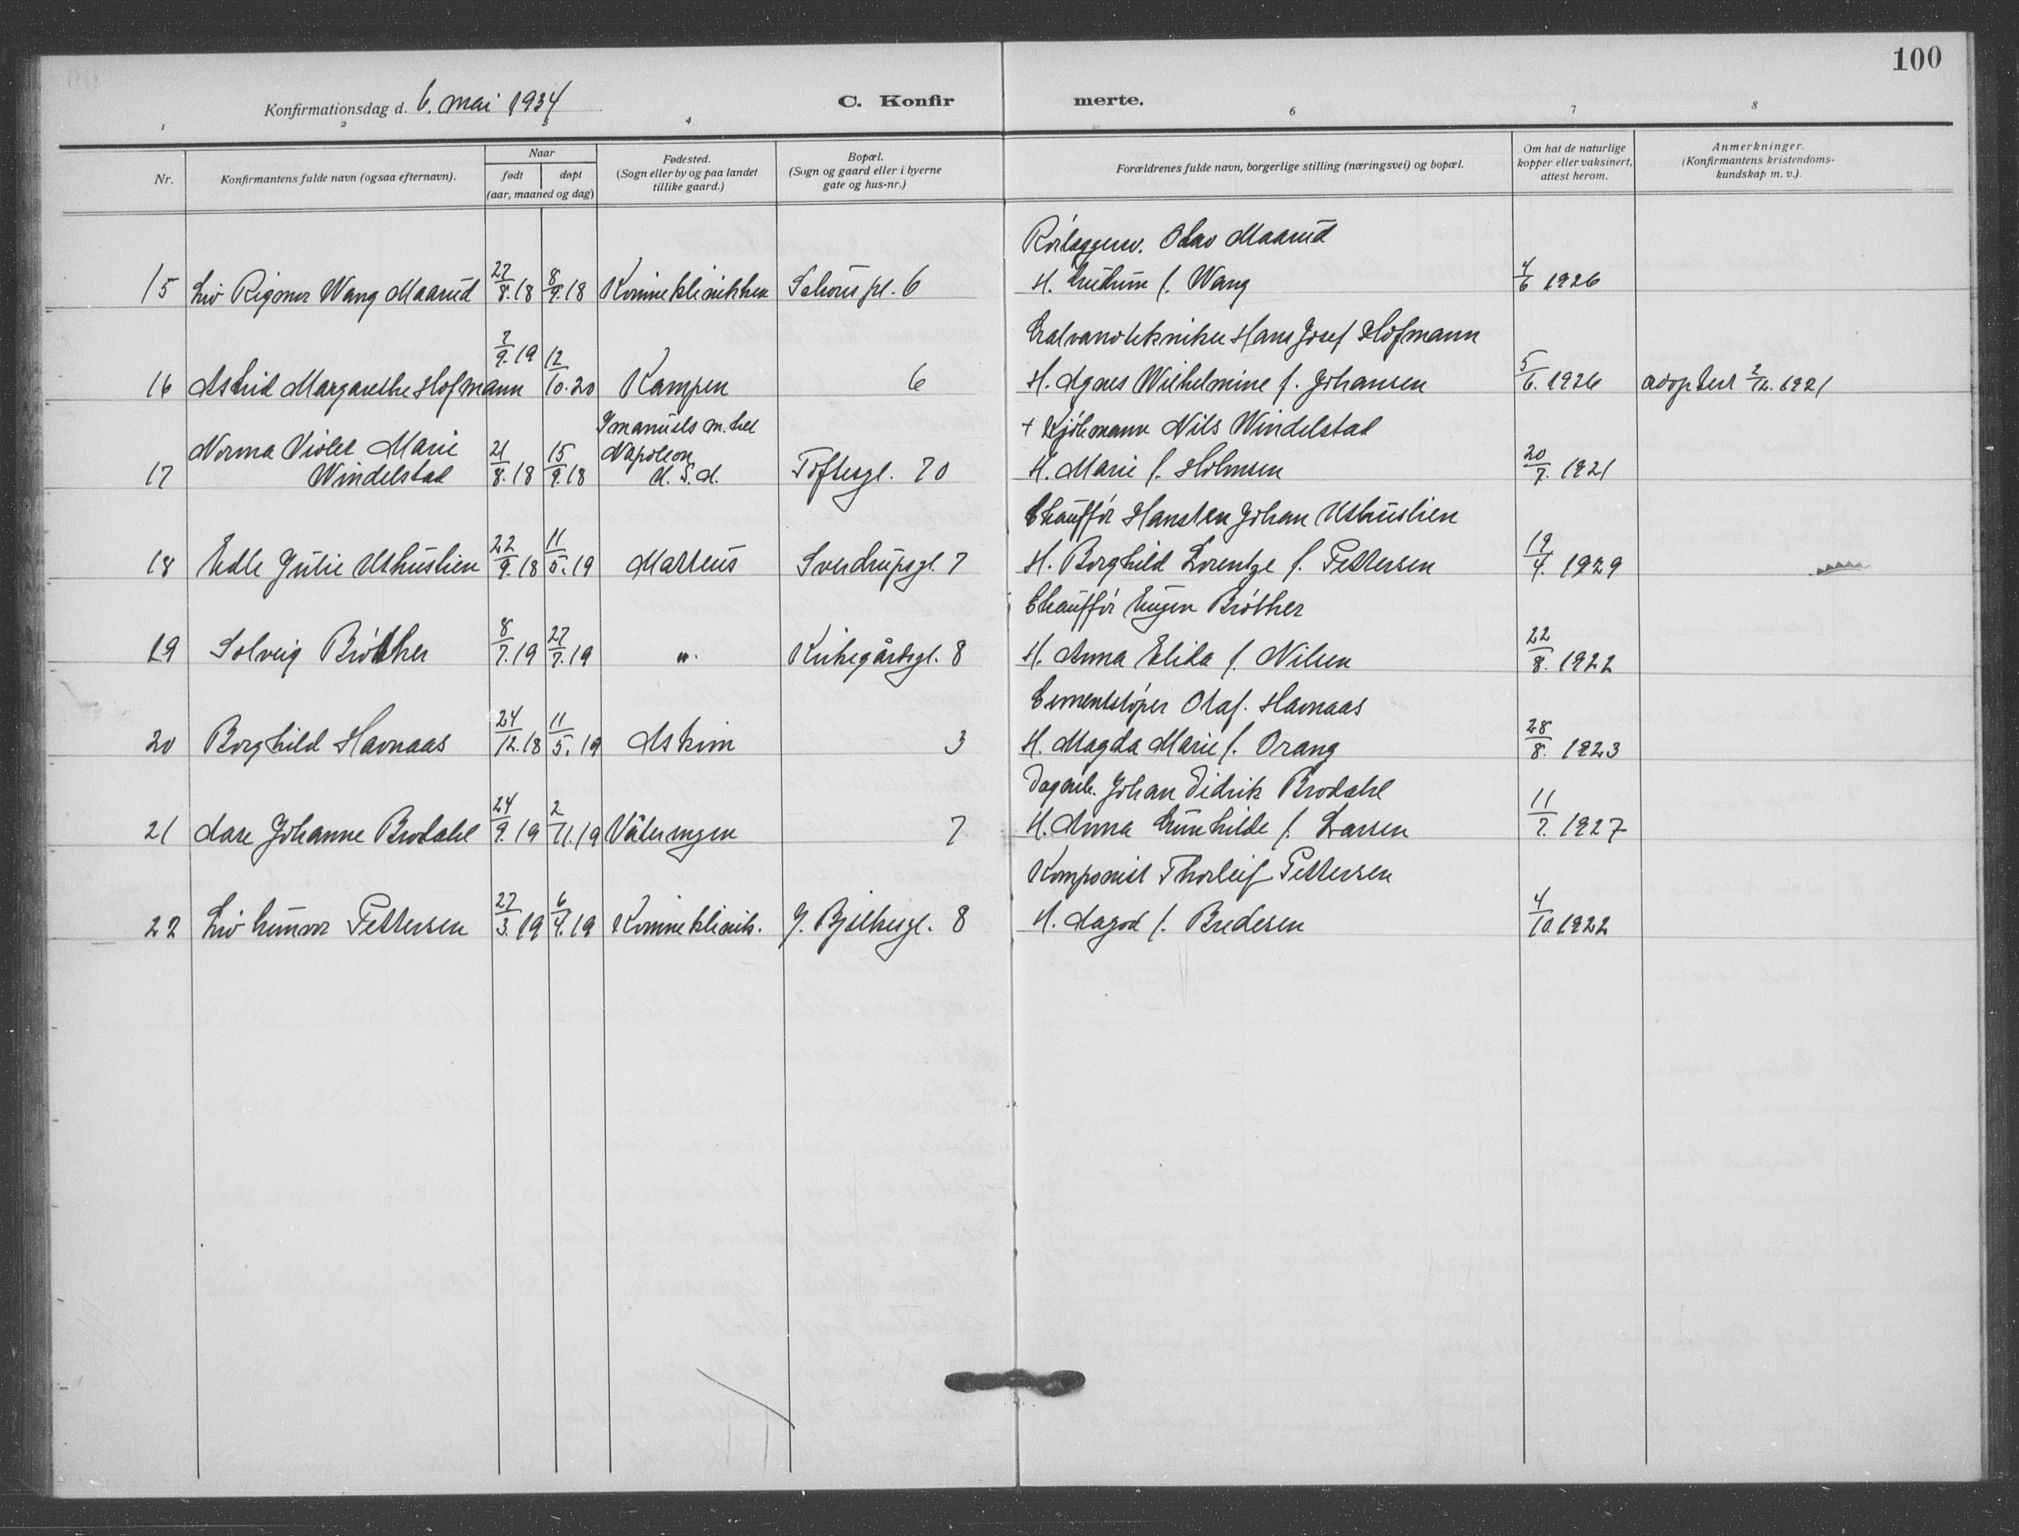 100
Konfirmationsdag d. 6. mai 1934
C. Konfir merte.
1 2 3 4 6 7 8
Nr.
Konfirmantens fulde navn (ogsaa efternavn).
Naar
født døpt
(aar, maaned og dag)
Fødested.
(Sogn eller by og paa landet
tillike gaard.)
Bopæl.
(Sogn og gaard eller i byerne
gate og hus-nr.)
Forældrenes fulde navn, borgerlige stilling (næringsvei) og bopæl.
Om hat de naturlige
kopper eller vaksinert,
attest herom.
Anmerkninger.
(Konfirmantens kristendoms-
kundskap m. v.).
Olav Maarud
15 Liv Rigmor Wang Maarud 27/8.18 8/9.18 Kvinneklinikken Schous pl. 6 H. f. Wang 4/6 1926
Galvanotekniker Hans Josef Hofmann
16 Astrid Margarethe Hofmann 7/9.19 12/10.20 Kampen 6 H. Agnes Wilhelmine f. Johansen 5/6. 1926 adoptert 2/12. 1921
Imanuels m.
+ Kjøbmann Nils Windelstad
Norma Violet Marie
Napoleon
17 Windelstad 21/8.18 15/9.18 U.S.A. Toftesgt. 70 H. Marie f. Holmsen 20/7. 1921
Chauffør Hansten Johan Uthuslien
18 Edle Julie Uthuslien 22/9.18 11/5.19 Matteus Sverdrupsgt. 7 H. Borghild Lorentze f. Pettersen 19/4. 1929
Chauffør Eugen Brøther
19 Solveig Brøther 8/7.19 27/7.19 " Kirkegårdsgt. 8 H. Anna Elida f. Nilsen 22/8. 1922
Cementstøper Olaf Havnaas
20 Borghild Havnaas 24/12.18 11/5.19 Askim 3 H. Magda Marie f. Orang 28/8. 1923
Dagarb. Johan Didrik Brodahl
21 Aase Johanne Brodahl 24/9.19 2/11.19 Vålerengen 7 H. Anna Gunhilde f. Larsen 11/7. 1927
Komponist Thorleif Pettersen
22 Liv Gunvor Pettersen 27/3.19 6/4.19 Kvinneklinik. J. Bjelkesgt. 8 H. Aagot f. Bredesen 4/10. 1922